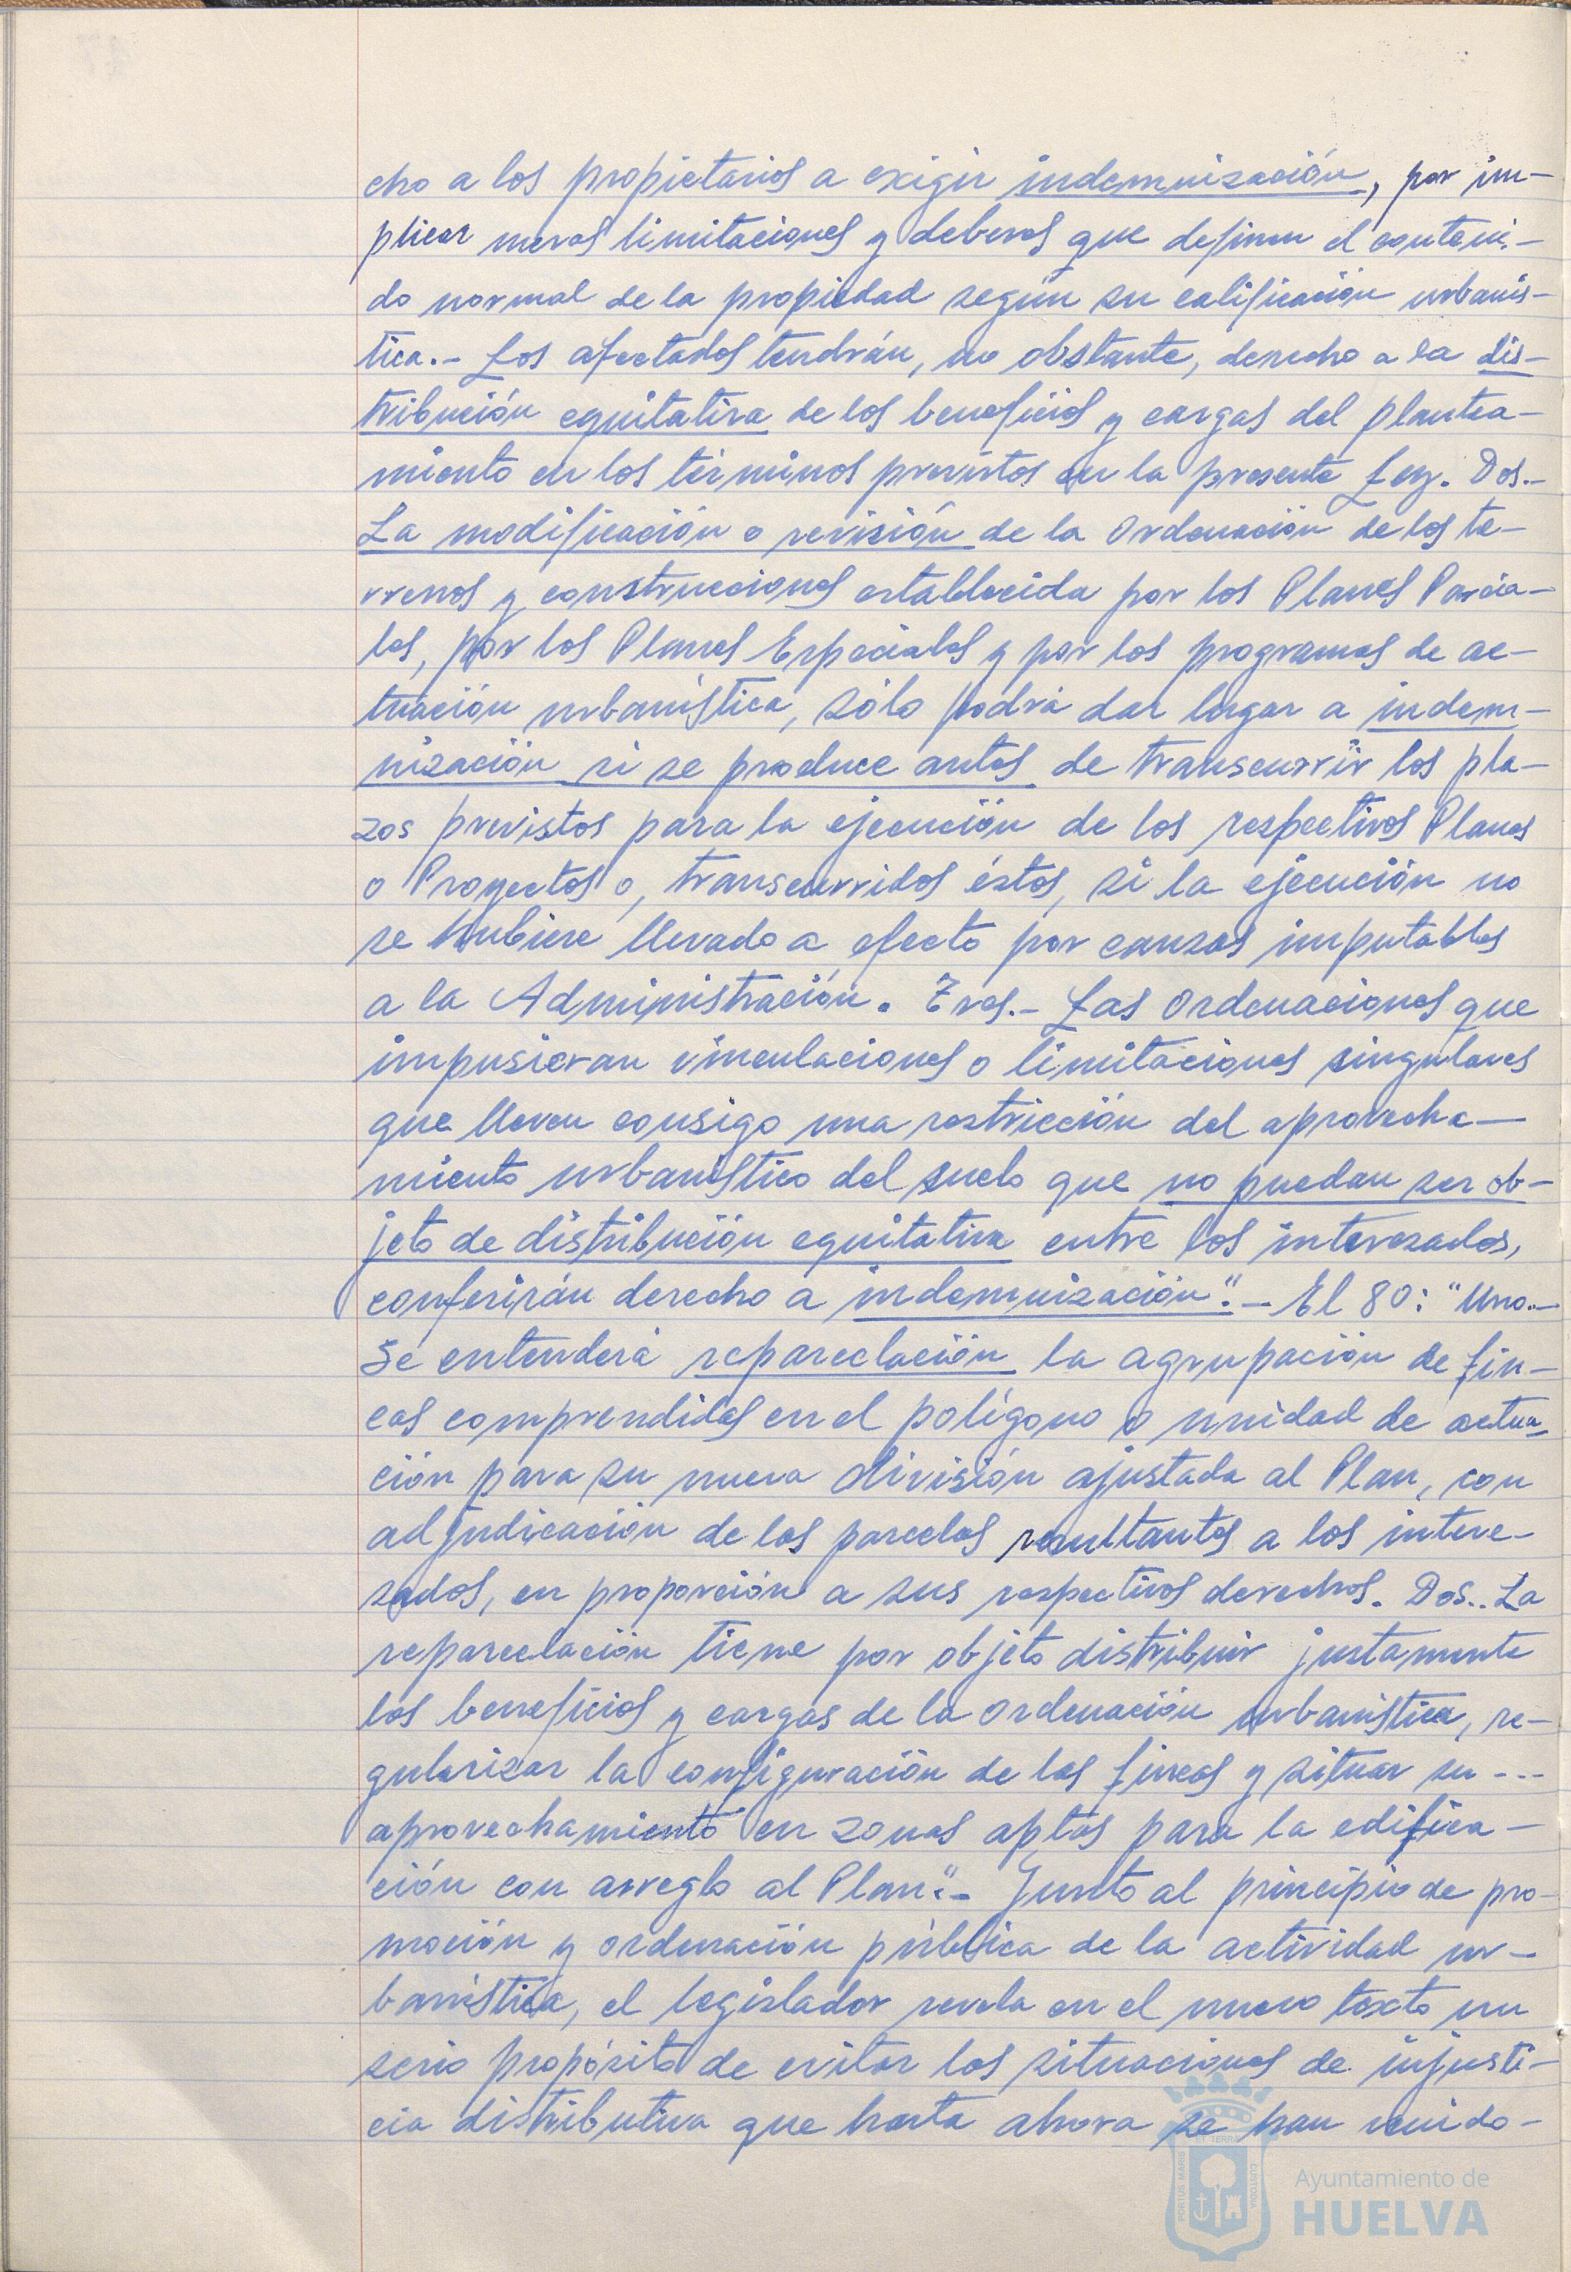 cho a los propietarios a exigir indemnización, por im-
plicar meras limitaciones y deberes que definen el conteni-
do normal de la propiedad según su calificación urbanís-
tica.- Los afectados tendrán, no obstante, derecho a la dis-
tribución equitativa de los beneficios y cargas del plantea-
miento en los términos previstos en la presente Ley. Dos.-
La modificación o revisión de la Ordenación de los te-
rrenos y construcciones establecida por los Planes Parcia-
les, por los Planes Especiales y por los programas de ac-
tuación urbanística, sólo podrá dar lugar a indem-
nización si se produce antes de transcurrir los pla-
zos previstos para la ejecución de los respectivos Planes
o Proyectos o, transcurridos éstos, si la ejecución no
se hubiere llevado a efecto por causas imputables
a la Administración. Tres.- Las Ordenaciones que
impusieran vinculaciones o limitaciones singulares
que lleven consigo una restricción del aprovecha-
miento urbanístico del suelo que no puedan ser ob-
jeto de distribución equitativa entre los interesados,
conferirán derecho a indemnización".- El 80: "Uno.-
Se entenderá reparcelación la agrupación de fin-
cas comprendidas en el polígono o unidad de actua-
ción para su nueva división ajustada al Plan, con
adjudicación de las parcelas resultantes a los intere-
sados, en proporción a sus respectivos derechos. Dos.. La
reparcelación tiene por objeto distribuir justamente
los beneficios y cargas de la Ordenación urbanística, re-
gularizar la configuración de las fincas y situar su ---
aprovechamiento en zonas aptas para la edifica-
ción con arreglo al Plan".- Junto al principio de pro-
moción y ordenación pública de la actividad ur-
banística, el legislador revela en el nuevo texto un
serio propósito de evitar las situaciones de injusti-
cia distributiva que hasta ahora se han venido-
PORTUS MARIS ET TERRAE CUSTODIA
Ayuntamiento de
HUELVA